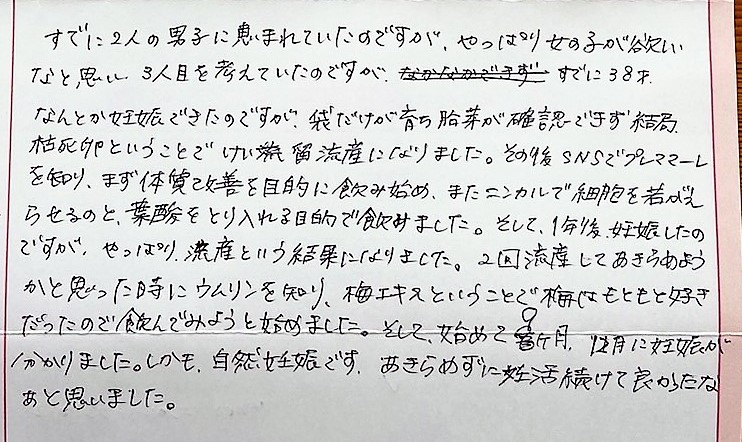 すでに2人の男子に恵まれていたのですが、やっぱり女の子が欲しい
なと思い 3人目を考えていたのですが、なかなかできず すでに38才。
なんとか妊娠できたのですが、袋だけが育ち胎芽が確認できず結局
枯死卵ということでけい留流産になりました。その後SNSでプレママーレ
を知り、まず体質改善を目的に飲み始め、またニンカルで細胞を若がえ
らせるのと、葉酸をとり入れる目的で飲みました。そして、1年後、妊娠したの
ですが、やっぱり、流産という結果になりました。2回流産してあきらめよう
かと思った時にウムリンを知り、梅エキスということで梅はもともと好き
だったので飲んでみようと始めました。そして、始めて9ヶ月、12月に妊娠が
分かりました。しかも、自然妊娠です。あきらめずに妊活続けて良かったな
あと思いました。